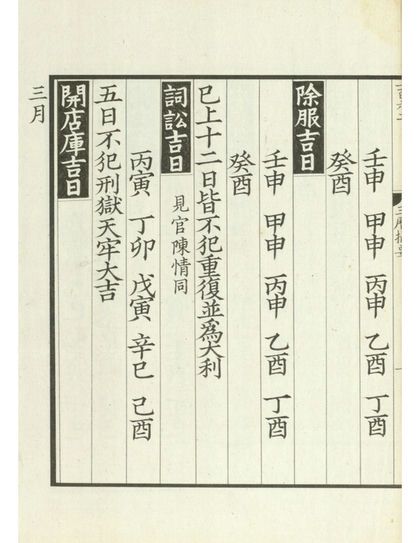 壬申 甲申 丙申 乙酉 丁酉
癸酉
除服吉日
壬申 甲申 丙申 乙酉 丁酉
癸酉
已上十二日皆不犯重復並爲大利
詞訟吉日 見官陳情同
丙寅 丁卯 戊寅 辛巳 己酉
五日不犯刑獄天牢大吉
開店庫吉日
三月